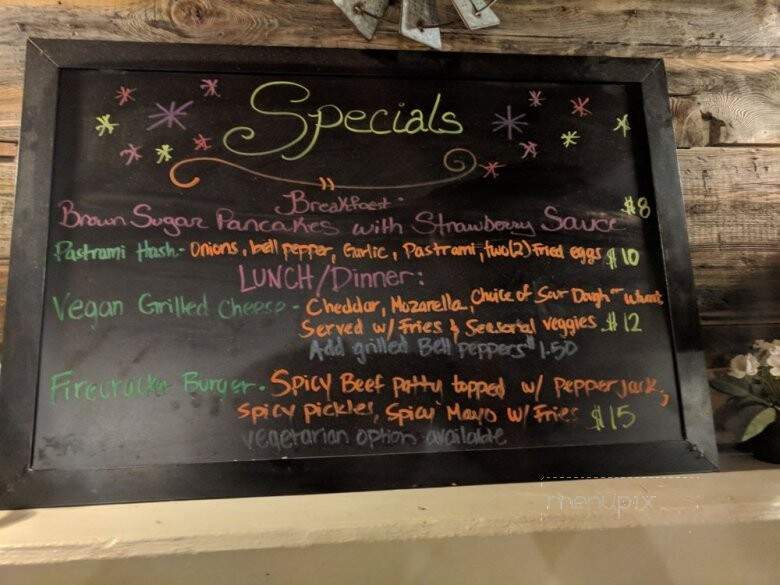 Specials
Breakfast:
Brown Sugar Pancakes with Strawberry Sauce $8
Pastrami Hash - Onions, bell pepper, Garlic, Pastrami, two(2) Fried eggs $10
LUNCH/Dinner:
Vegan Grilled Cheese - Cheddar, Mozarella, Choice of Sour Dough or Wheat
Served w/ Fries & Seasonal veggies $12
Add grilled Bell peppers $1.50
Firecracker Burger - Spicy Beef patty topped w/ pepper jack,
spicy pickles, Spicy Mayo w/ Fries $15
vegetarian option available
menupix